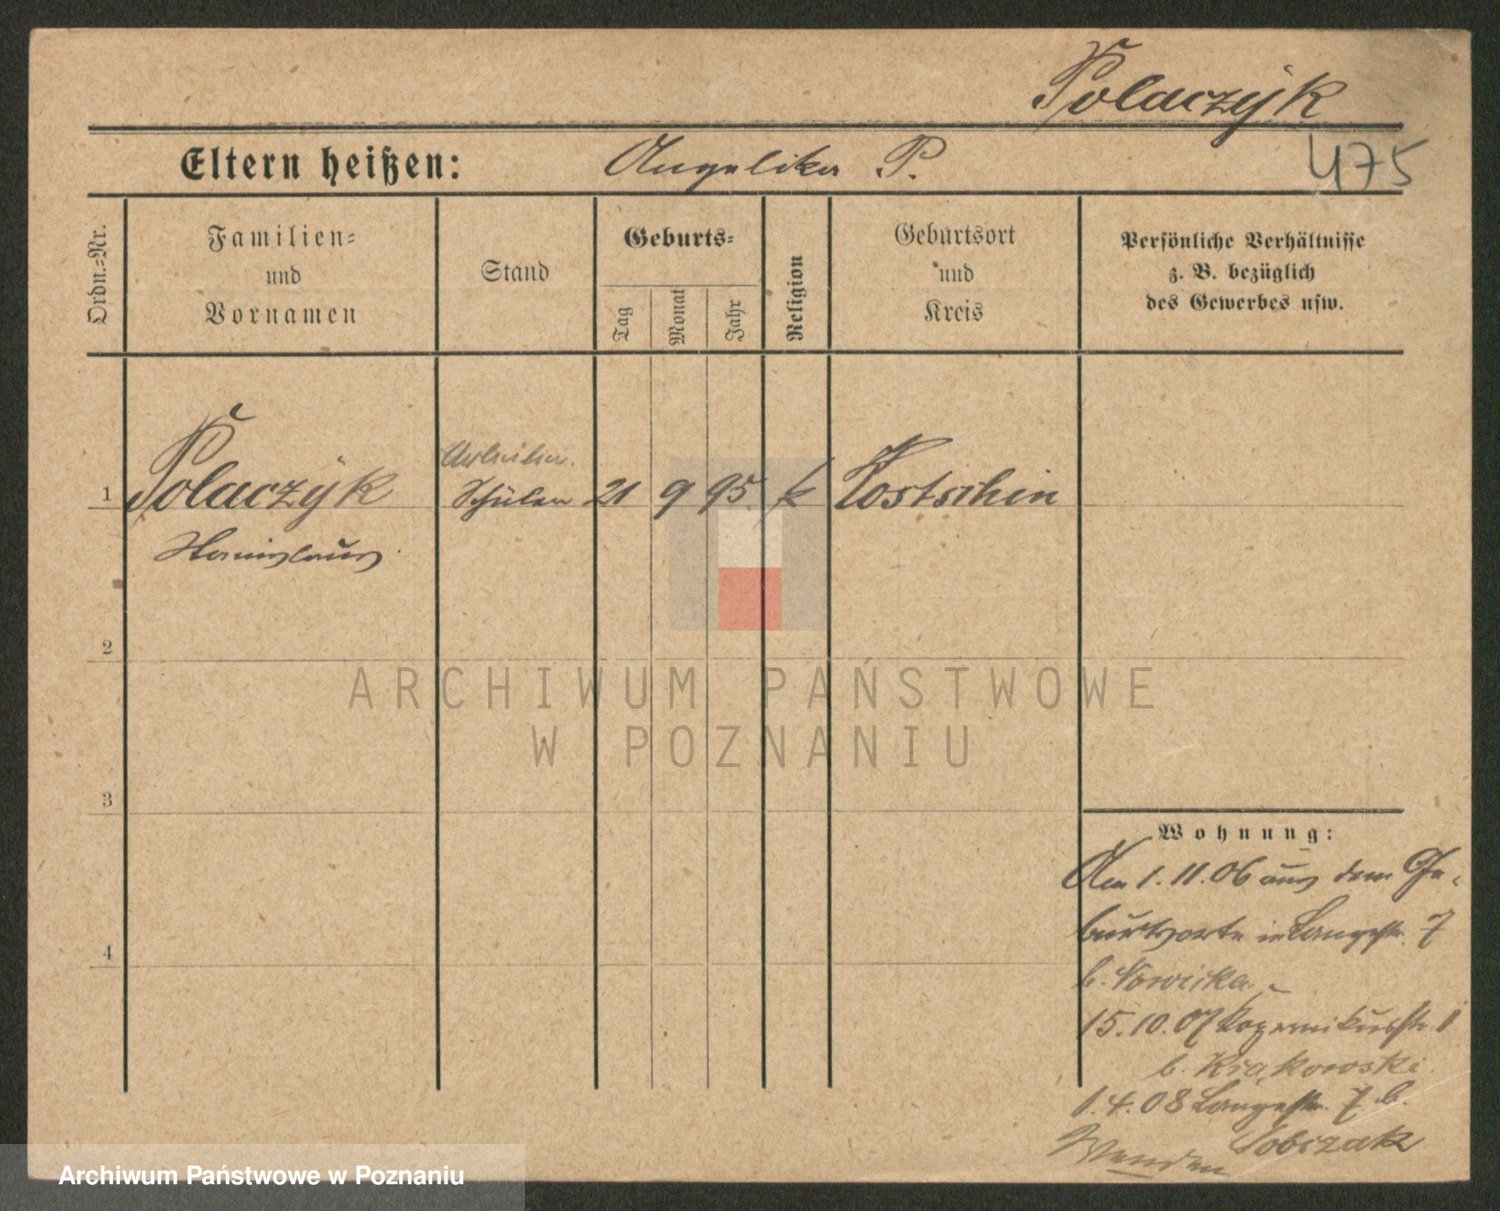 Polaczÿk
Eltern heißen: Angelika P.
475
Ordn.-Nr.
Familien-
und
Vornamen
Stand
Geburts-
Tag
Monat
Jahr
Religion
Geburtsort
und
Kreis
Persönliche Verhältnisse
z. B. bezüglich
des Gewerbes usw.
1 Polaczÿk Schüler 21 9 95. k Kostschin
Stanislaus
2
ARCHIWUM PAŃSTWOWE
W POZNANIU
3
Wohnung:
Am 1.11.06 aus dem Ge-
burtsorte in Langestr. 7
b. Nowicka
4
15.10.07 Kopernikusstr. 1
b. Krąkowski.
1.4.08 Langestr. 7 b.
Sobczak
Archiwum Państwowe w Poznaniu